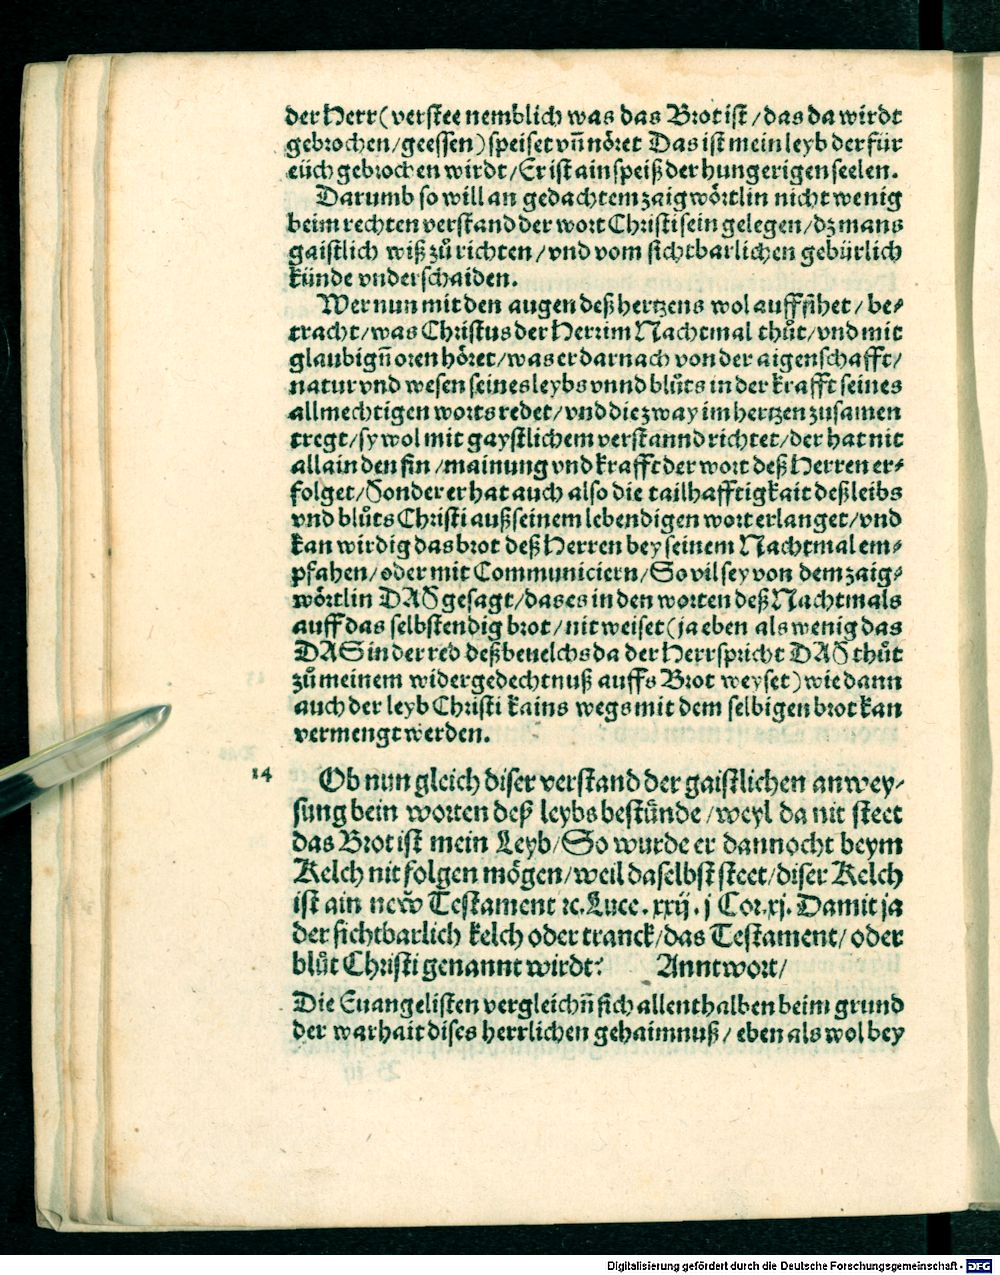 der Herr (verstee nemblich was das Brot ist / das da wirdt
gebrochen / geessen) speiset vñ nöret Das ist mein leyb der für
eüch gebrochen wirdt / Er ist ain speiß der hungerigen seelen.
Darumb so will an gedachtem zaigwörtlin nicht wenig
beim rechten verstand der wort Christi sein gelegen / dz mans
gaistlich wiß zů richten / vnd vom sichtbarlichen gebürlich
künde vnderschaiden.
Wer nun mit den augen deß hertzens wol auffsihet / be-
tracht / was Christus der Herr im Nachtmal thůt / vnd mit
glaubigñ oren höret / was er darnach von der aigenschafft /
natur vnd wesen seines leybs vnnd blůts in der krafft seines
allmechtigen worts redet / vnd die zway im hertzen zusamen
tregt / sy wol mit gaystlichem verstannd richtet / der hat nit
allain den sin / mainung vnd krafft der wort deß Herren er-
folget / Sonder er hat auch also die tailhafftigkait deß leibs
vnd blůts Christi auß seinem lebendigen wort erlanget / vnd
kan wirdig das brot deß Herren bey seinem Nachtmal em-
pfahen / oder mit Communiciern / So vil sey von dem zaig-
wörtlin DAS gesagt / das es in den worten deß Nachtmals
auff das selbstendig brot / nit weiset (ja eben als wenig das
DAS in der red deß beuelchs da der Herr spricht DAS thůt
zů meinem widergedechtnuß auffs Brot weyset) wie dann
auch der leyb Christi kains wegs mit dem selbigen brot kan
vermengt werden.
14 Ob nun gleich diser verstand der gaistlichen anwey-
sung bein worten deß leybs bestünde / weyl da nit steet
das Brot ist mein Leyb / So wurde er dannocht beym
Kelch nit folgen mögen / weil daselbst steet / diser Kelch
ist ain new Testament ꝛc. Luce. xxij. j Cor. xj. Damit ja
der sichtbarlich kelch oder tranck / das Testament / oder
blůt Christi genannt wirdt? Anntwort /
Die Euangelisten vergleichñ sich allenthalben beim grund
der warhait dises herrlichen gehaimnuß / eben als wol bey
Digitalisierung gefördert durch die Deutsche Forschungsgemeinschaft - DFG